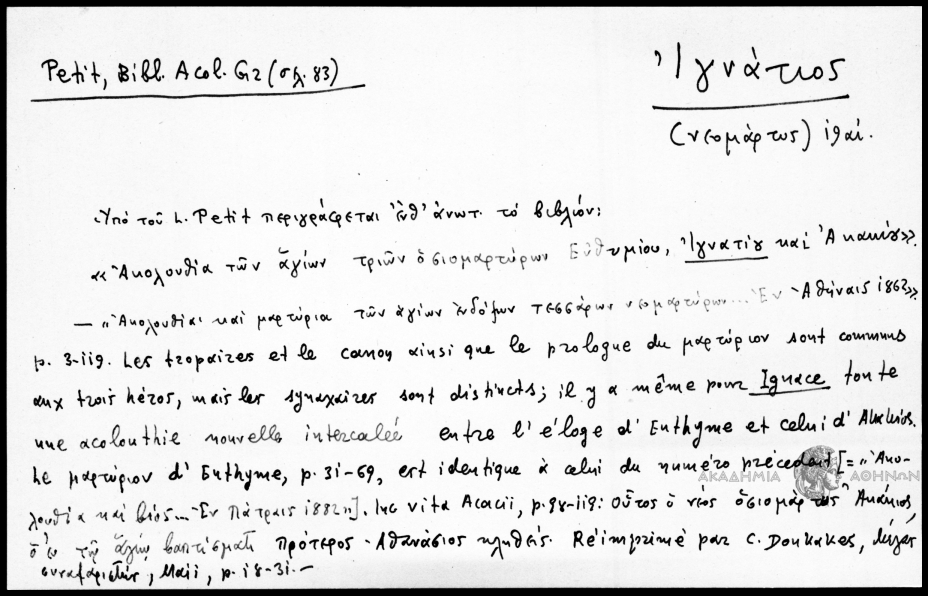 Petit, Bibl. Acol. Gr (σελ. 83)
Ἰγνάτιος
(νεομάρτυς) ιθαί.
Ὑπὸ τοῦ L. Petit περιγράφεται ἐνθ' ἀνωτ. τὸ βιβλίον:
«Ἀκολουθία τῶν ἁγίων τριῶν ὁσιομαρτύρων Εὐθυμίου, Ἰγνατίου καὶ Ἀκακίου».
— «Ἀκολουθίαι καὶ μαρτύρια τῶν ἁγίων ἐνδόξων τεσσάρων νεομαρτύρων... Ἐν Ἀθήναις 1862»
p. 3-119. Les tropaires et le canon ainsi que le prologue du μαρτύριον sont communs
aux trois héros, mais les synaxaires sont distincts; il y a même pour Ignace toute
une acolouthie nouvelle intercalée entre l'éloge d'Euthyme et celui d'Akakios.
Le μαρτύριον d'Euthyme, p. 31-69, est identique à celui du numéro précédent [= «Ἀκο-
λουθία καὶ βίος... Ἐν Πάτραις 1882»]. Inc vita Acacii, p. 98-119: Οὗτος ὁ νέος ὁσιομάρτυς Ἀκάκιος,
ὁ ἐν τῷ ἁγίῳ βαπτίσματι πρότερος Ἀθανάσιος κληθείς. Réimprimé par C. Doukakes, Μέγας
συναξαριστής, Maii, p. 18-31.—
ΑΚΑΔΗΜΙΑ ΑΘΗΝΩΝ